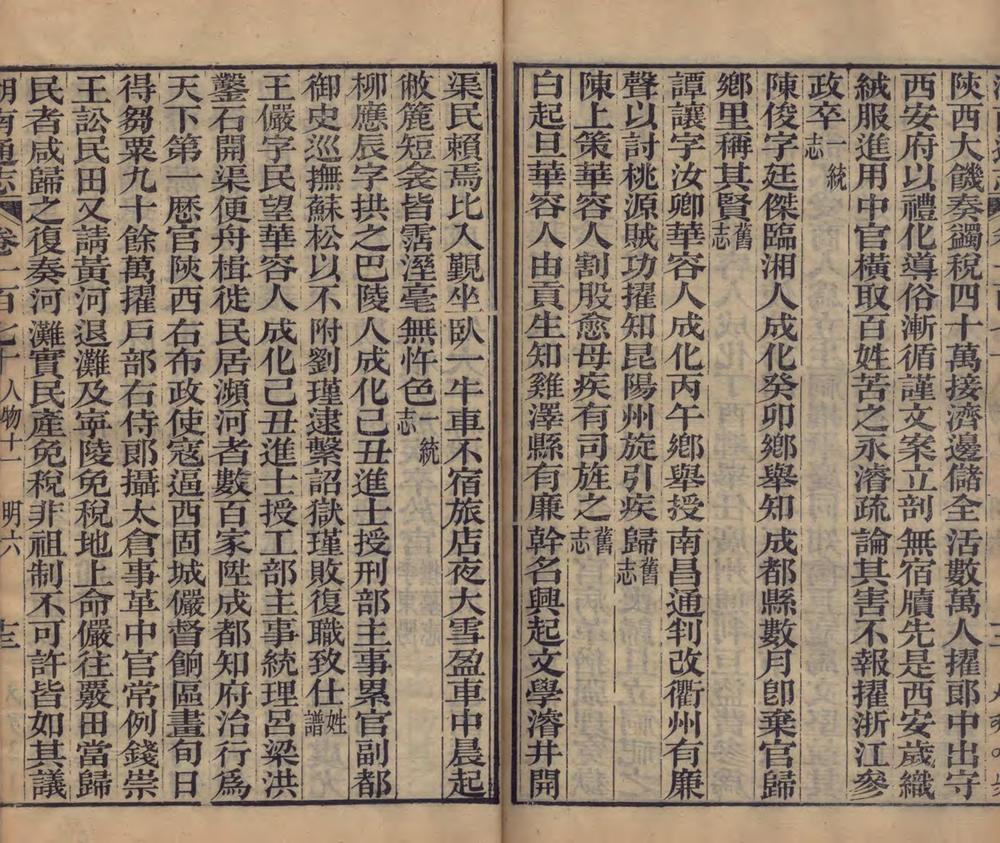 陝西大饑奏蠲稅四十萬接濟邊儲全活數萬人擢郎中出守
西安府以禮化導俗漸循謹文案立剖無宿牘先是西安歲織
絨服進用中官橫取百姓苦之永濬疏論其害不報擢浙江參
政卒一統志
陳俊字廷傑臨湘人成化癸卯鄉舉知成都縣數月卽棄官歸
鄉里稱其賢舊志
譚讓字汝卿華容人成化丙午鄉舉授南昌通判改衢州有廉
聲以討桃源賊功擢知昆陽州旋引疾歸舊志
陳上策華容人割股愈母疾有司旌之舊志
白起旦華容人由貢生知雞澤縣有廉幹名興起文學濬井開
渠民賴焉比入覲坐臥一牛車不宿旅店夜大雪盈車中晨起
敝簏短衾皆霑溼毫無忤色一統志
柳應辰字拱之巴陵人成化己丑進士授刑部主事累官副都
御史巡撫蘇松以不附劉瑾逮繫詔獄瑾敗復職致仕姓譜
王儼字民望華容人成化己丑進士授工部主事統理呂梁洪
鑿石開渠便舟楫徙民居瀕河者數百家陞成都知府治行爲
天下第一歷官陝西右布政使寇逼西固城儼督餉區畫旬日
得芻粟九十餘萬擢戸部右侍郎攝太倉事革中官常例錢崇
王訟民田又請黃河退灘及寜陵免稅地上命儼往覈田當歸
民者咸歸之復奏河灘實民產免稅非祖制不可許皆如其議
湖南通志 卷一百七十 人物十一 明六 十三